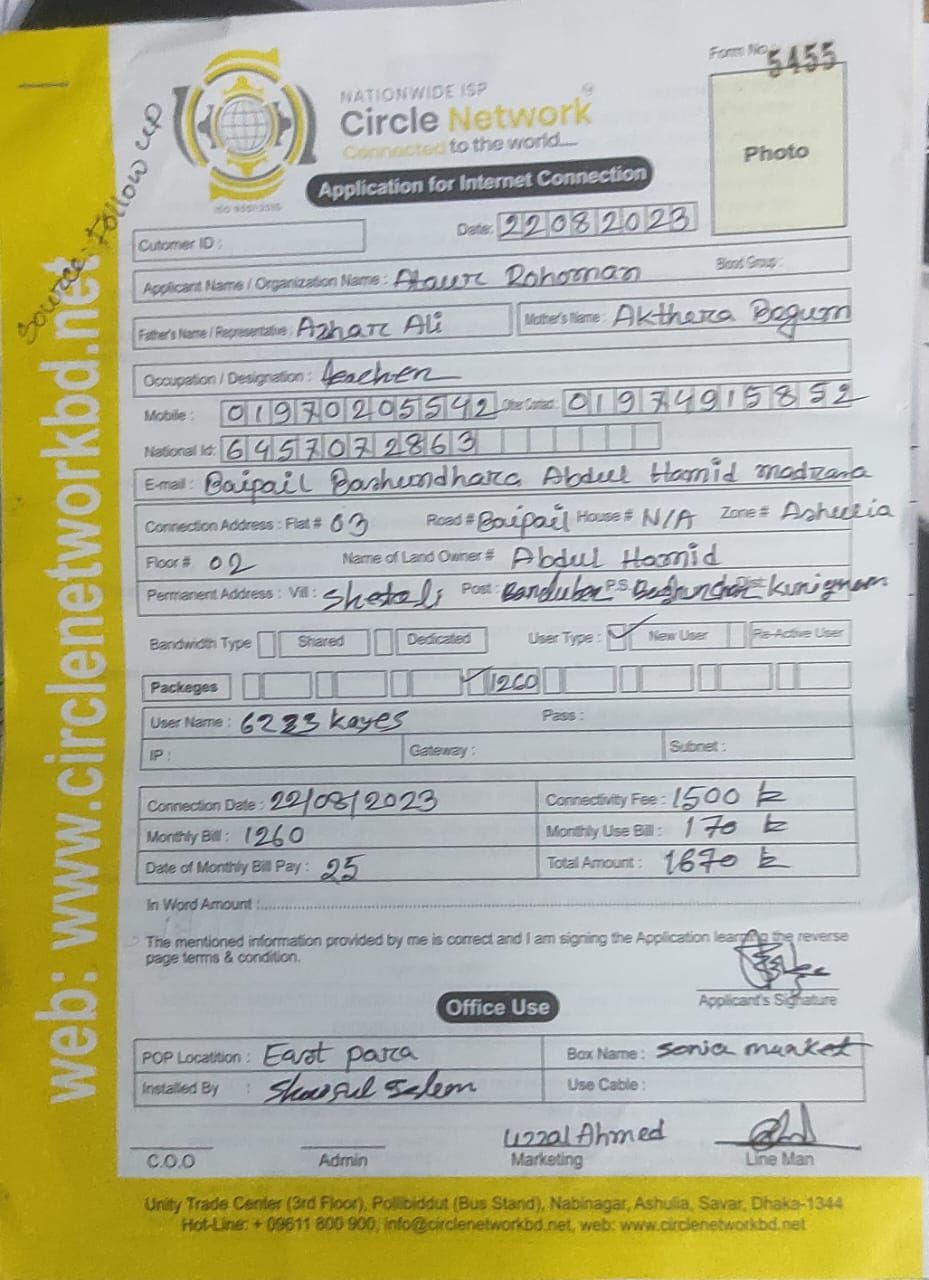 Form No. 5455
NATIONWIDE ISP
Circle Network
Connected to the world....
Photo
Application for Internet Connection
Source: Follow up
Date: 22082023
Cutomer ID :
Applicant Name / Organization Name : Ataur Rohoman Blood Group :
Father's Name / Representative : Azhar Ali Mother's Name : Akthera Begum
Occupation / Designation : teacher
Mobile : 01970205542 Other Contact : 01974915852
National Id: 6457072863
E-mail : Baipail Bashundhara Abdul Hamid madrasa
Connection Address : Flat # 03 Road # Baipail House # N/A Zone # Ashulia
Floor # 02 Name of Land Owner # Abdul Hamid
Permanent Address : Vill : Post : P.S Dist:
Bandwidth Type Shared Dedicated User Type : New User Re-Active User
Packeges 1260
User Name : 6223 kayes Pass :
IP : Gateway : Subnet :
Connection Date : 22/08/2023 Connectivity Fee : 1500 tk
Monthly Bill : 1260 Monthly Use Bill : 170 tk
Date of Monthly Bill Pay : 25 Total Amount : 1670 tk
In Word Amount :
The mentioned information provided by me is correct and I am signing the Application learning the reverse
page terms & condition.
Applicant's Signature
Office Use
POP Locatition : East para Box Name : Sonia market
Installed By : Use Cable :
Uzzal Ahmed
C.O.O Admin Marketing Line Man
web: www.circlenetworkbd.net
Unity Trade Center (3rd Floor), Pollibiddut (Bus Stand), Nabinagar, Ashulia, Savar, Dhaka-1344
Hot-Line: + 09611 800 900, info@circlenetworkbd.net, web: www.circlenetworkbd.net